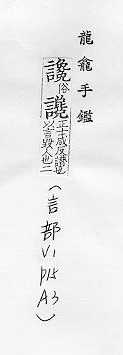 龍龕手鑑
俗
正士咸反譖也
以言毀人也二
(言部V1 P15 A3)